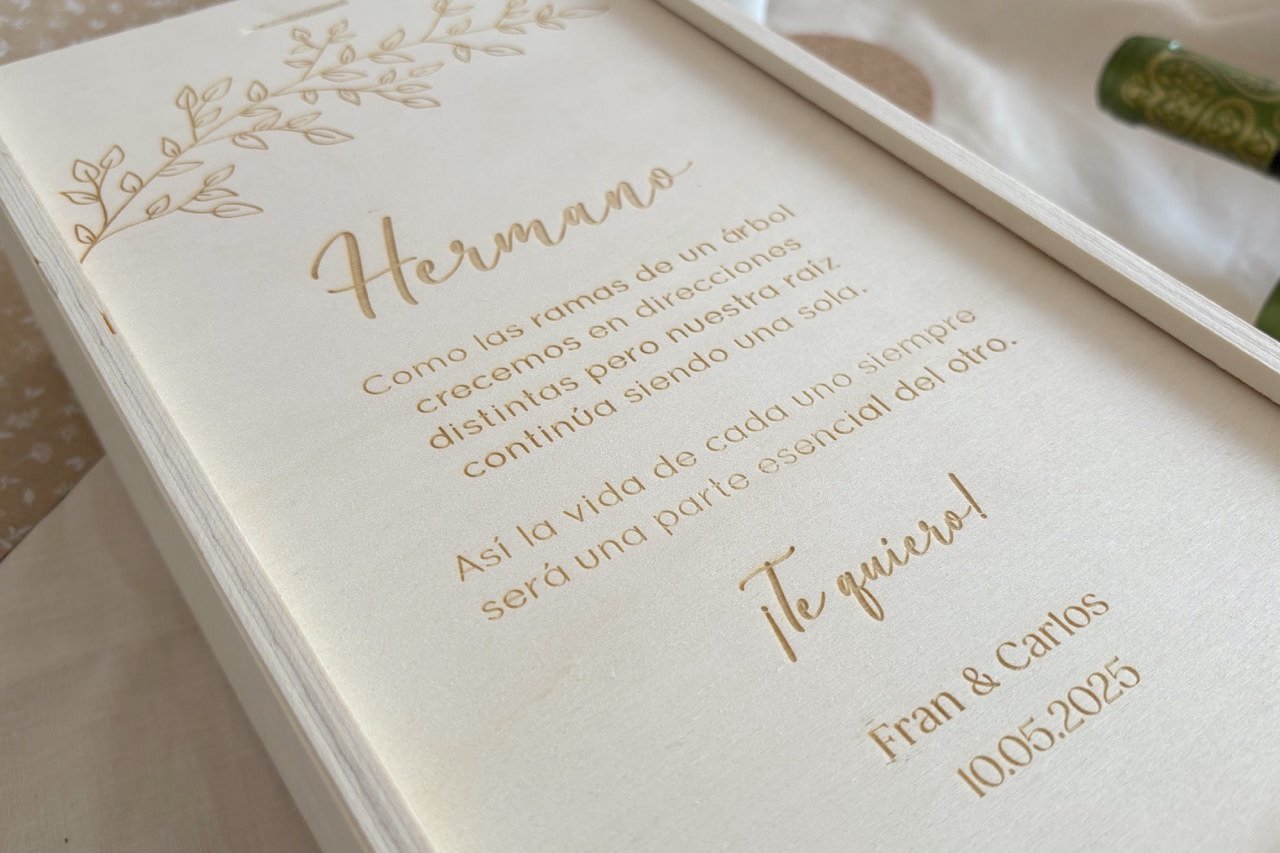 Hermano
Como las ramas de un árbol
crecemos en direcciones
distintas pero nuestra raíz
continúa siendo una sola.
Así la vida de cada uno siempre
será una parte esencial del otro.
¡Te quiero!
Fran & Carlos
10.05.2025